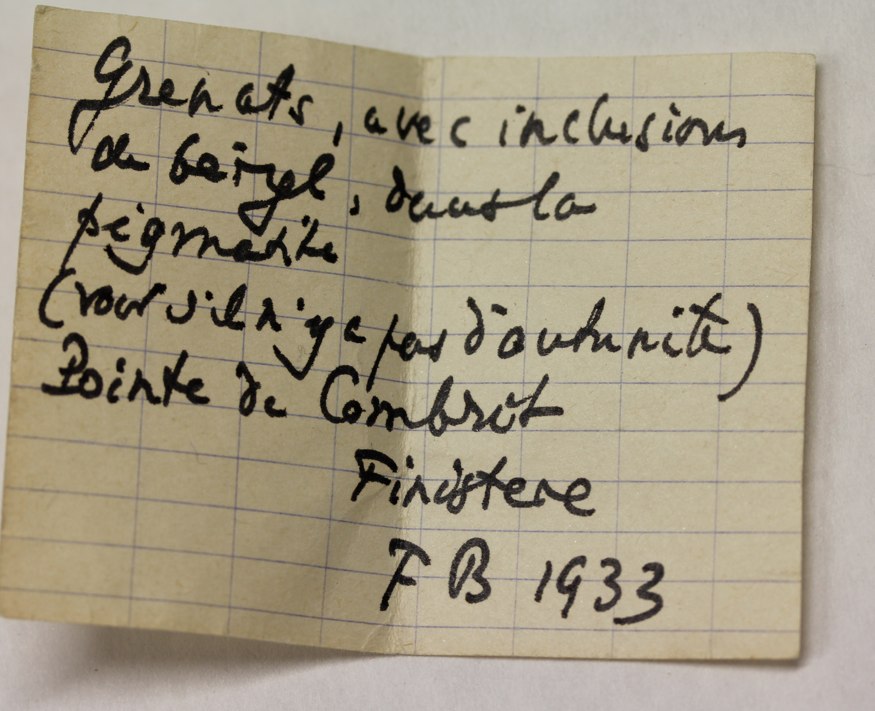 Grenats, avec inclusions
de béryl, dans la
pégmatite
(voir s'il n'y a pas d'autunite)
Pointe de Combrit
Finistere
F B 1933